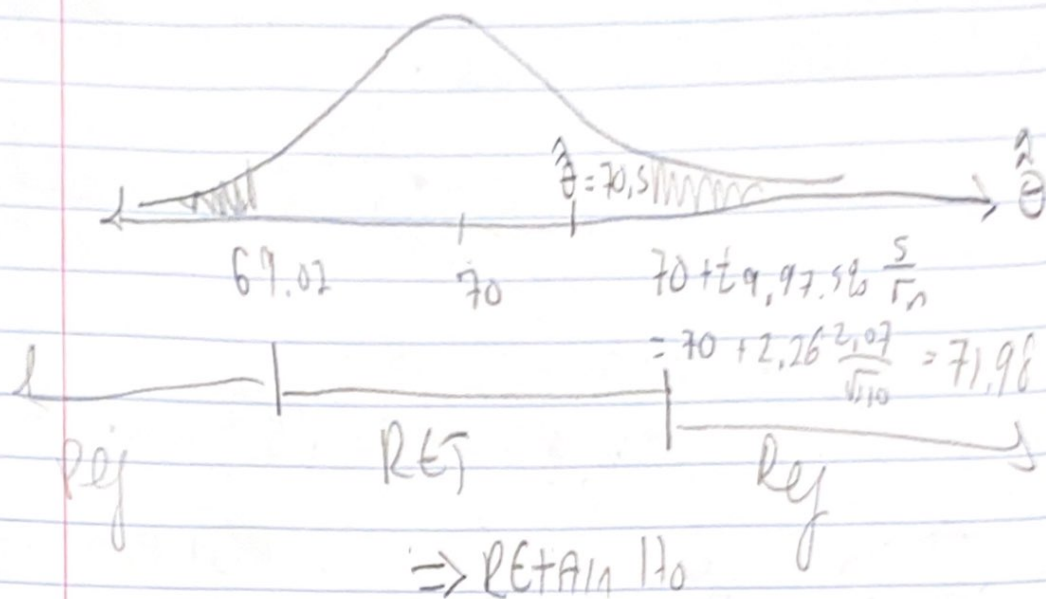 θ̂ = 70,5
θ̂̂
69.02 70 70 + t9,97.5% s/√n
= 70 + 2,26 2,07/√10 = 71,98
Rej RET Rej
=> RETAIN H0